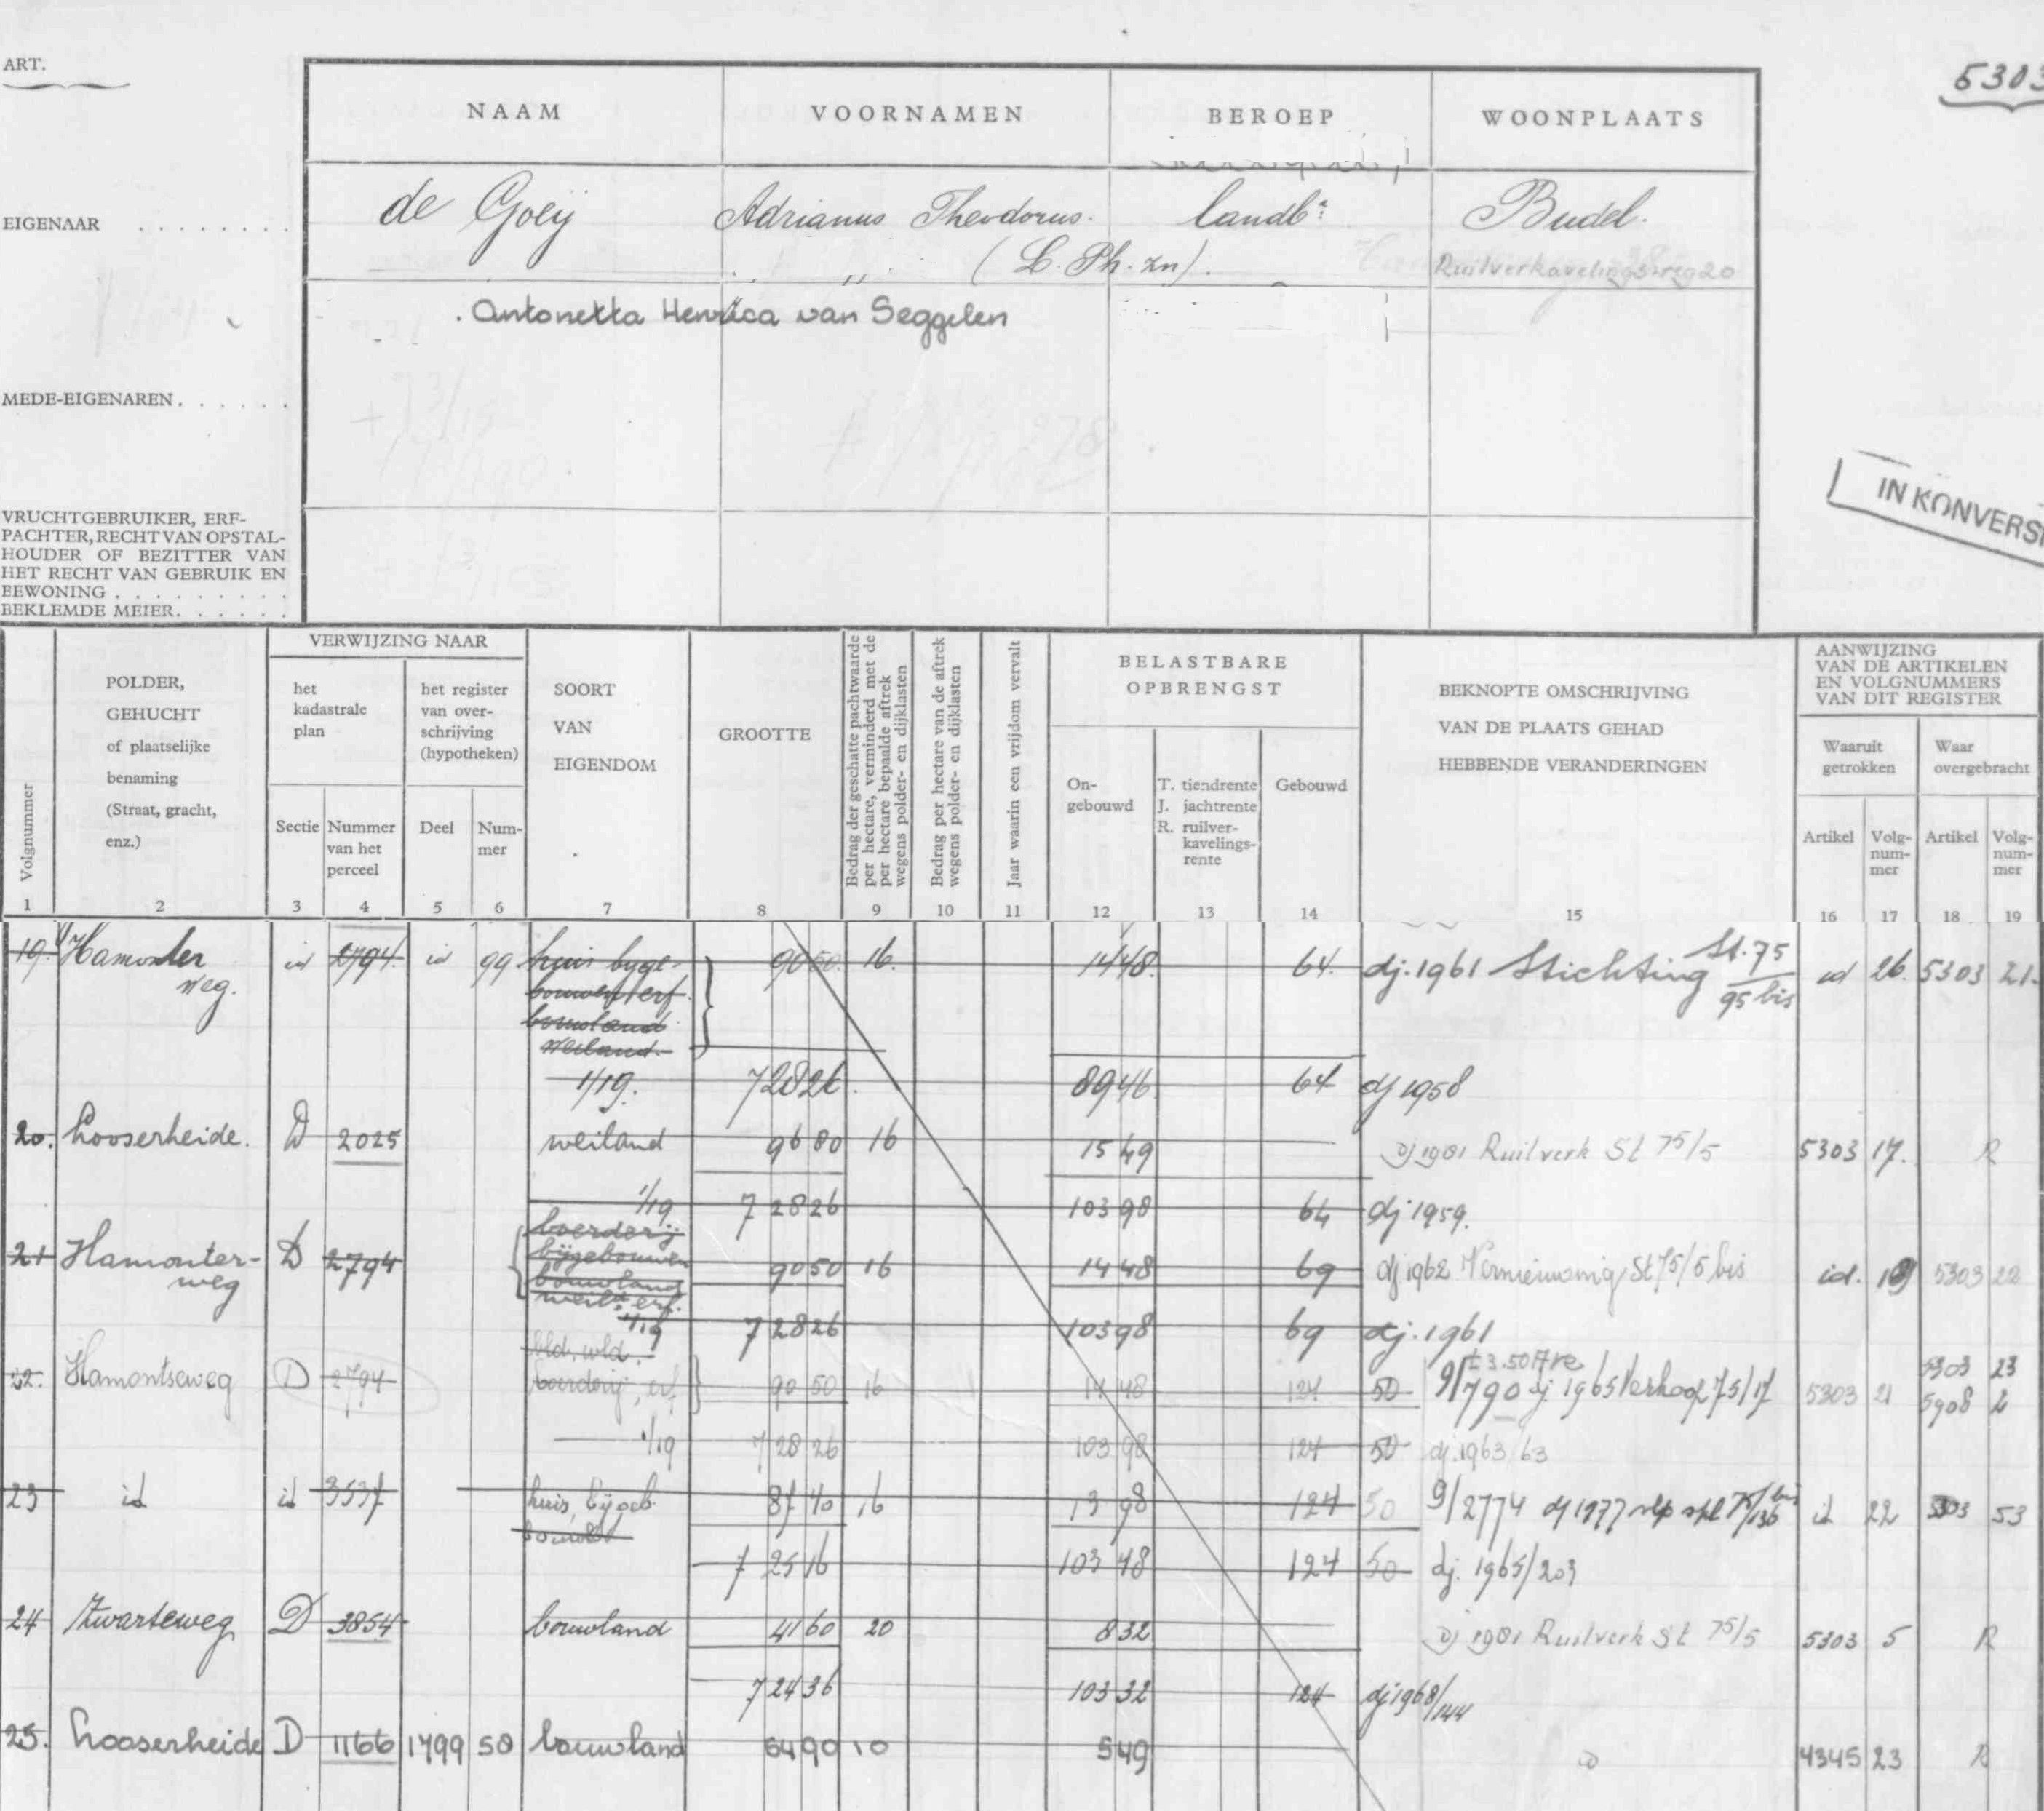 ART.
5303
NAAM VOORNAMEN BEROEP WOONPLAATS
EIGENAAR . . . . . . . .
de Goeij Adrianus Theodorus. landb.r Budel.
(L. Ph. zn). Ruilverkavelings-reg 20
Antonetta Henrica van Seggelen
MEDE-EIGENAREN . . . . . .
IN KONVERS
VRUCHTGEBRUIKER, ERF-
PACHTER, RECHT VAN OPSTAL-
HOUDER OF BEZITTER VAN
HET RECHT VAN GEBRUIK EN
BEWONING . . . . . . . . .
BEKLEMDE MEIER . . . . . .
Volgnummer
POLDER,
GEHUCHT
of plaatselijke
benaming
(Straat, gracht,
enz.)
VERWIJZING NAAR
het
kadastrale
plan
het register
van over-
schrijving
(hypotheken)
Sectie
Nummer
van het
perceel
Deel
Num-
mer
SOORT
VAN
EIGENDOM
GROOTTE
Bedrag der geschatte pachtwaarde
per hectare, verminderd met de
per hectare bepaalde aftrek
wegens polder- en dijklasten
Bedrag per hectare van de aftrek
wegens polder- en dijklasten
Jaar waarin een vrijdom vervalt
BELASTBARE
OPBRENGST
On-
gebouwd
T. tiendrente
J. jachtrente
R. ruilver-
kavelings-
rente
Gebouwd
BEKNOPTE OMSCHRIJVING
VAN DE PLAATS GEHAD
HEBBENDE VERANDERINGEN
AANWIJZING
VAN DE ARTIKELEN
EN VOLGNUMMERS
VAN DIT REGISTER
Waaruit
getrokken
Waar
overgebracht
Artikel
Volg-
num-
mer
Artikel
Volg-
num-
mer
1 2 3 4 5 6 7 8 9 10 11 12 13 14 15 16 17 18 19
19. Hamonter id 2794. id 99 huis byge- 90 50. 16. 14 48. 64. dj. 1961 Stichting St. 75 id 26. 5303 21.
weg. bouwen erf. 95 bis
bouwland
weiland.
1/19. 7 28 26. 89 46. 64 dj 1958
20. Looserheide. D 2025 weiland 96 80 16 15 49 Dj 1981 Ruilverk St 75/5 5303 17. R
1/19 7 28 26 103 98 64 dj 1959.
boerderij
21 Hamonter- D 2794 bijgebouwen 90 50 16 14 48 69 dj 1962 Vernieuwing St 75/5 bis id. 19 5303 22
weg bouwland
weild. erf.
1/19 7 28 26 103 98 69 dj. 1961
bld. wld.
22. Hamontseweg D 2794 boerderij, erf 90 50 16 14 48 124 50 9/790 dj. 1965 Verkoop 75/17 5303 21 5303 23
± 3.50 Are 5908 2
1/19 7 28 26 103 98 124 50 dj. 1963/63
23 id id 3537 huis, bijgeb. 87 40 16 13 98 124 50 9/2774 dj 1977 75/136 bis id 22 5303 53
bouwld
7 25 16 103 48 124 50 dj. 1965/203
24 Zwarteweg D 3854 bouwland 41 60 20 8 32 Dj 1981 Ruilverk St 75/5 5303 5 R
7 24 36 103 32 124 dj 1968/144
25. Looserheide D 1166 1799 50 bouwland 54 90 10 5 49 4345 23 R